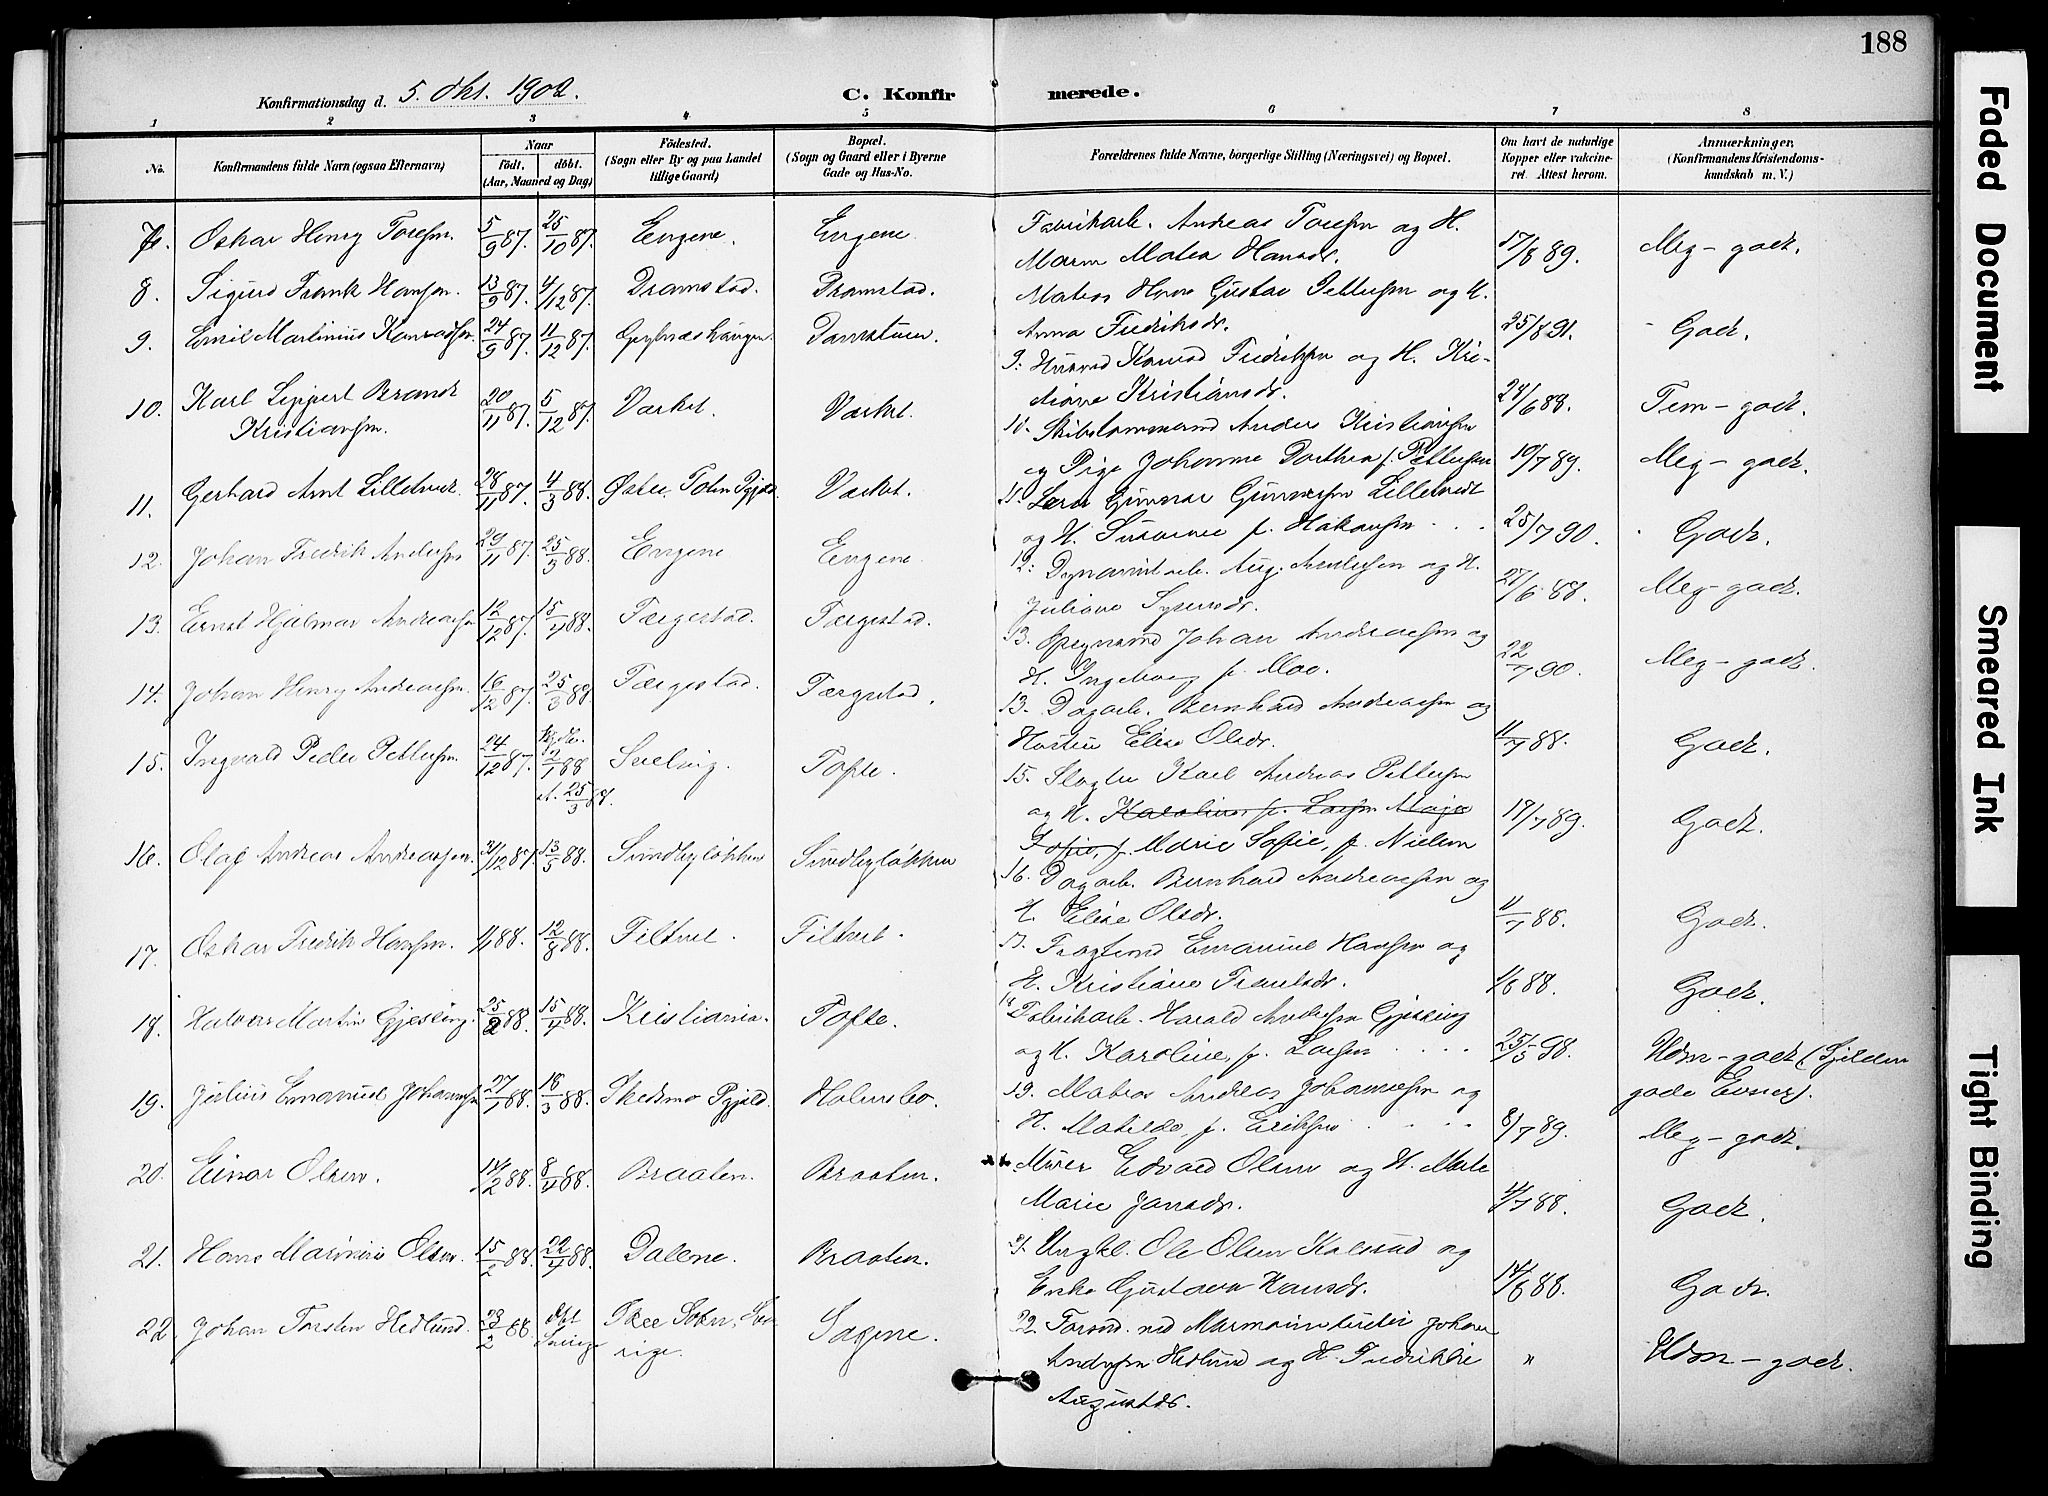 188
Konfirmationsdag d. 5. Okt. 1902.
C. Konfirmerede.
1 2 3 4 5 6 7 8
No.
Konfirmandens fulde Navn (ogsaa Efternavn)
Naar
födt. döbt.
(Aar, Maaned og Dag)
Födested.
(Sogn eller By og paa Landet
tillige Gaard)
Bopæl.
(Sogn og Gaard eller i Byerne
Gade og Hus-No.
Forældrenes fulde Navne, borgerlige Stilling (Næringsvei) og Bopæl.
Om havt de naturlige
Kopper eller vakcine-
ret. Attest herom.
Anmærkninger.
(Konfirmandens Kristendoms-
kundskab m. V.)
7. Oskar Henry Toresen. 5/9 87. 25/10 87. Engene. Engene.
Fabrikarb. Andreas Toresen og H.
Maren Matea Hansdr. 17/8 89. Meg-godt.
8. Sigurd Frank Hansen. 13/9 87. 4/12 87. Dramstad. Dramstad.
Matros Hans Gustav Pettersen og H.
Anna Fredriksdr. 25/8 91. Godt.
9. Emil Martinius Konradsen 24/9 87. 11/12 87.
9. Husmd Konrad Fredriksen og H. Kri-
stiane Kristiansdr. 24/6 88. Tem-godt.
10. Karl Brandt
Kristiansen. 20/11 87. 5/12 87. Værket. Værket.
10. Skibstømmermd Anders Kristiansen
og Pige Johanne Dorthea f. Pettersen 19/7 89. Meg-godt.
11. Gerhard Arnt Lilletvedt. 28/11 87. 4/3 88. Østre Toten Pgjeld. Værket.
11. Lærer Gunnar Gunnersen Lilletvedt
og H. Susanne f. Håkansen . . . 25/7 90. Godt.
12. Johan Fredrik Andersen 29/11 87. 25/3 88. Engene Engene.
12. Dynamitarb. Aug. Andersen og H.
Juliane Syversdr. 27/6 88. Meg-godt.
13. Ernst Hjalmar Andreasen 12/12 87. 15/4 88. Færgestad. Færgestad.
13. Opsynsmd Johan Andreassen og
H. Ingeborg f. Moe. 22/7 90. Meg-godt.
14. Johan Henry Andreasen. 16/12 87. 25/3 88. Færgestad. Færgestad.
13. Dagarb. Bernhard Andreassen og
Hustru Elise Olsdr. 11/7 88. Godt.
15. Ingvald Peder Pettersen. 24/12 87. Hjdb. 2/1 88 st. 25/3 88. Sætre Tofte.
15. Slagter Karl Andreas Pettersen
og H. Karoline, f. Larsen Maja
Sofie, f. Marie Sofie, f. Nielsen 19/7 89. Godt.
16. Olaf Andreas Andreassen. 31/12 87. 13/5 88. Sundbyløkken Sundbyløkken
16. Dagarb. Bernhard Andreassen og
H. Elise Olsdr. 11/7 88. Godt.
17. Oskar Fredrik Hansen. 1/1 88. 12/8 88. Filtvet. Filtvet.
17. Fragtemd Emanuel Hansen og
H. Kristiane Frantsdr. 1/6 88. Godt.
18. Halvor Martin Gjessing. 25/2 88. 15/4 88. Kristiania. Tofte.
18 Fabrikarb. Harald Andersen Gjessing
og H. Karoline, f. Larsen . . . . 25/5 98. Udm-godt (Sjelden
gode Evner).
19. Julius Emanuel Johansen 27/1 88. 18/3 88. Skedsmo Pgjeld. Holmsbo.
19. Matros Andreas Johannesen og
H. Matilde, f. Eriksen . . . . 8/7 89. Meg-godt.
20. Einar Olsen. 14/2 88. 8/4 88. Braaten. Braaten.
20 Murer Edvard Olsen og H. Marte
Marie Jansdr. 4/7 88. Godt.
21. Hans Marinius Olsen. 15/2 88. 22/4 88. Dalene. Braaten.
21. Ungkl. Ole Olsen Kolsrud og
Enke Gustava Hansdr. 14/6 88. Godt.
22. Johan Torsten Hedlund. 23/2 88. dbt Sverige Sogn, Sverige. Sagene.
22. Formd. ved Johan
Andersen Hedlund og H. Fredrikke
Augustdr. " Udm-godt.
Faded Document
Smeared Ink
Tight Binding